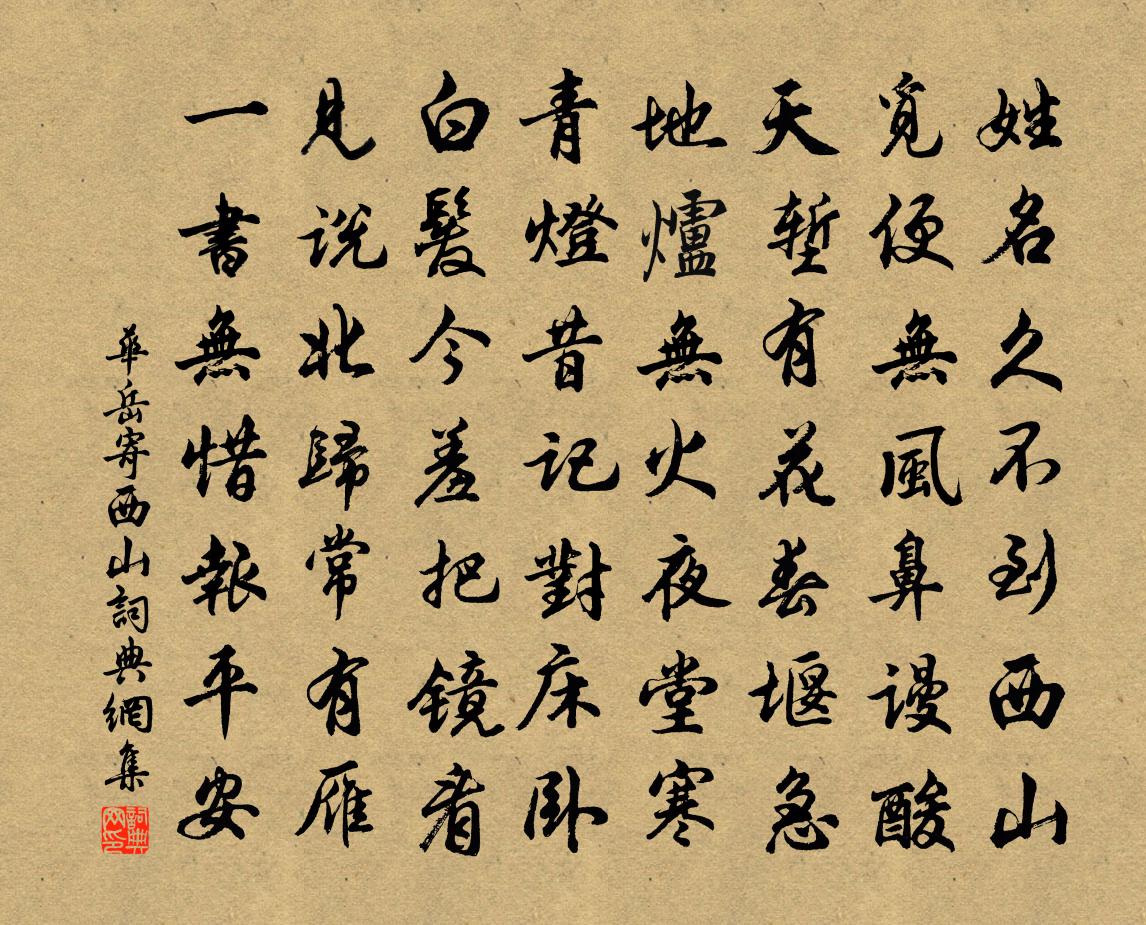 姓名久不到西山
覓便無風鼻謾酸
天塹有花春堰急
地爐無火夜堂寒
青燈昔記對床臥
白髮今羞把镜看
見說北歸常有雁
一書無惜報平安
華岳寄西山詞典網集
詞典网印